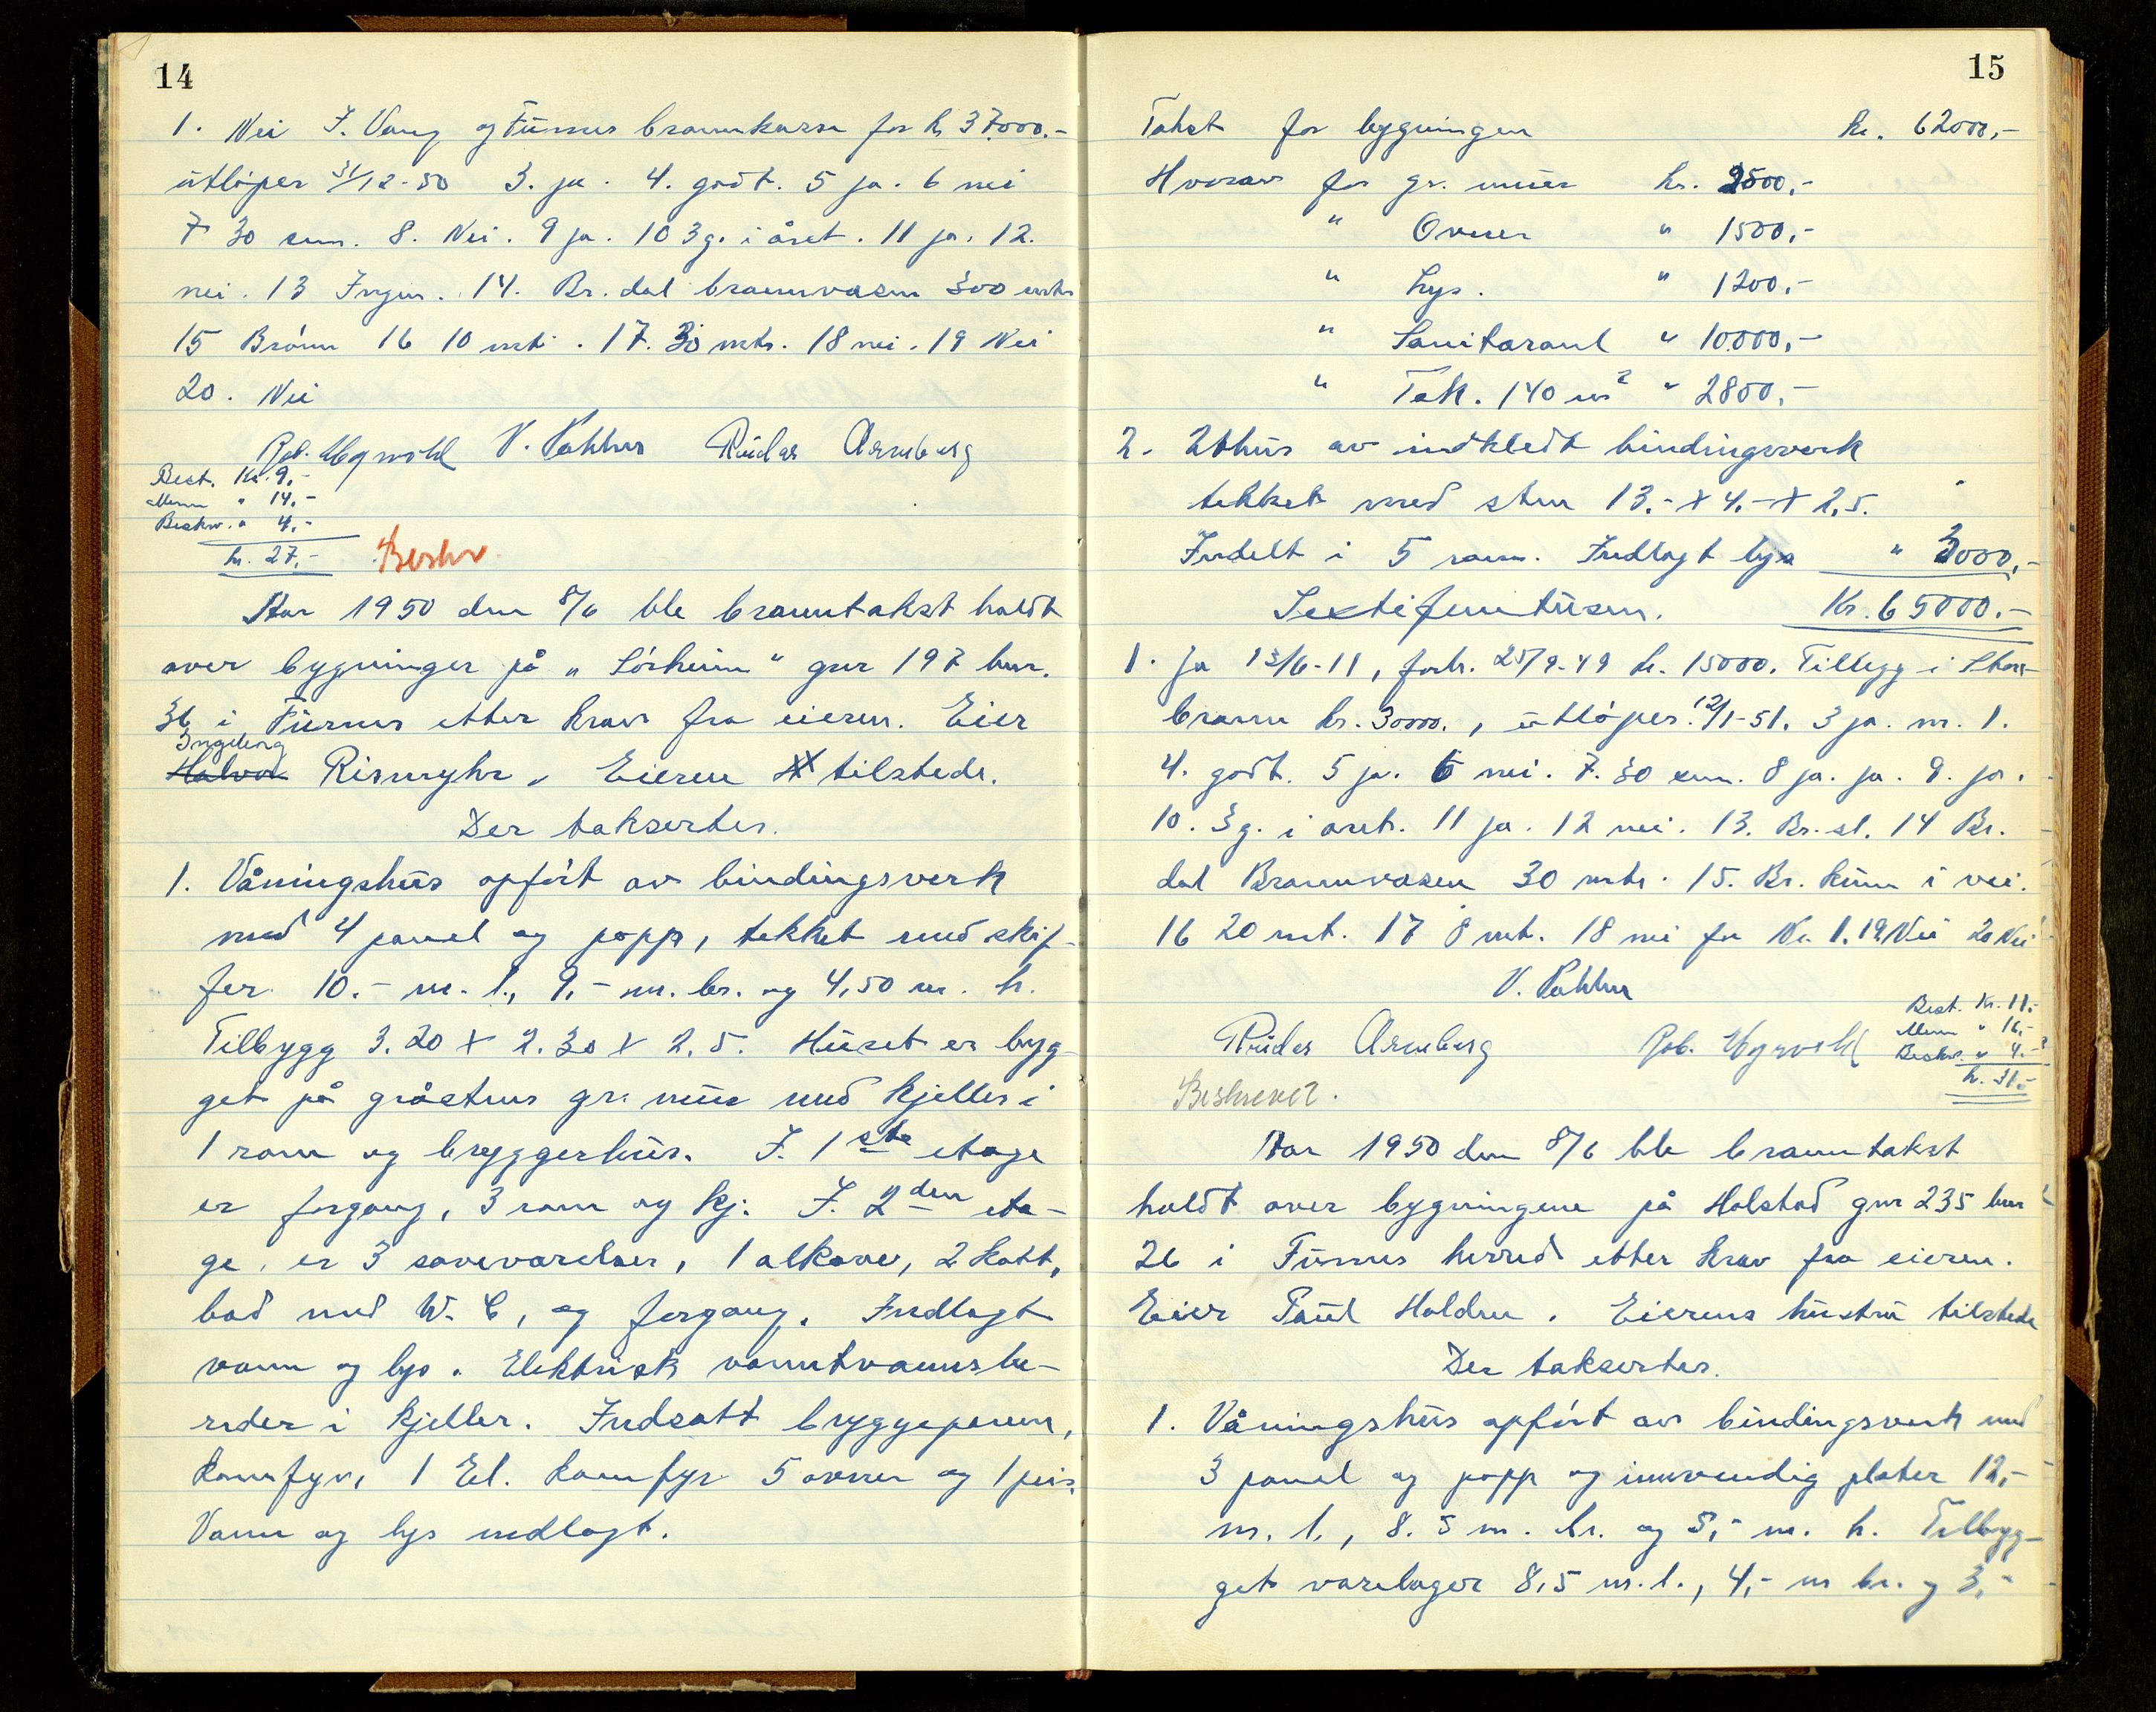 14
1. Nei I. Vang og Furnes brannkasse for kr 37.000.-
utløper 31/12-50 3. ja. 4. godt. 5 ja. 6 nei
7 30 cm. 8. Nei. 9 ja. 10 3 g. i året. 11 ja. 12.
nei. 13 Ingen. 14. Br.dal brannvasen 300 mtr
15 Brønn 16 10 mt. 17. 30 mtr. 18 nei. 19 Nei
20. Nei
Rob. V. Ruder Arneberg
Best. Kr. 9,-
Menn " 14,-
Beskr. " 4,-
kr. 27,- Beskr
Aar 1950 den 8/6 ble branntakst holdt
over bygninger på "Sørheim" gnr 197 bnr.
36 i Furnes etter krav fra eieren. Eier
Ingeborg
Halvor Rismyhr. Eieren tilstede.
Der taksertes.
1. Våningshus opført av bindingsverk
med 4 panel og papp, tekket med skif-
fer 10.- m. l., 9,- m. br. og 4,50 m. h.
Tilbygg 3.20 x 2.30 x 2,5. Huset er byg-
get på gråstens gr. mur med kjeller i
1 rom og bryggerhus. I. 1ste etage
er forgang, 3 rom og kj. I. 2den eta-
ge er 3 soveværelser, 1 alkove, 2 kott,
bad med W. C, og forgang. Indlagt
vann og lys. Elektrisk varmtvannsbe-
reder i kjeller. Indsatt bryggepanne,
komfyr, 1 El. komfyr 5 ovner og 1 peis.
Vann og lys indlagt.
15
Takst for bygningen kr. 62000,-
Hvorav for gr. muur kr. 2500,-
" Ovner " 1500,-
" Lys. " 1200,-
" Sanitæranl " 10.000,-
" Tak. 140 m2 " 2800,-
2. Uthus av indkledt bindingsverk
tekket med sten 13,- x 4,- x 2,5.
Indelt i 5 rom. Indlagt lys " 3000,-
Sextifemtusen. Kr. 65000.-
1. Ja 13/6-11, forh. 25/9-49 kr. 15000. Tillegg i Stor-
brann kr. 30000., utløper 12/1-51. 3 ja. nr. 1.
4. godt. 5 ja. 6 nei. 7. 30 cm. 8 ja. ja. 9. ja.
10. 3 g. i aret. 11 ja. 12 nei. 13. Br.sl. 14 Br.
dal Brannvasen 30 mtr. 15. Br. kum i vei.
16 20 mt. 17 8 mt. 18 nei for Nr. 1. 19. Nei 20 Nei
V.
Ruder Arneberg Rob.
Best. Kr. 11,-
Menn " 16,-
Beskr. " 4.-
kr. 31,-
Beskrevet.
Aar 1950 den 8/6 ble branntakst
holdt over bygningene på Holstad gnr 235 bnr
26 i Furnes herred etter krav fra eieren.
Eier Paul Holden. Eierens hustru tilstede
Der taksertes.
1. Våningshus opført av bindingsverk med
3 panel og papp og innvendig plater 12,-
m. l., 8.5 m. br. og 5,- m. h. Tilbyg-
get varelager 8,5 m. l., 4,- m br. og 3,-